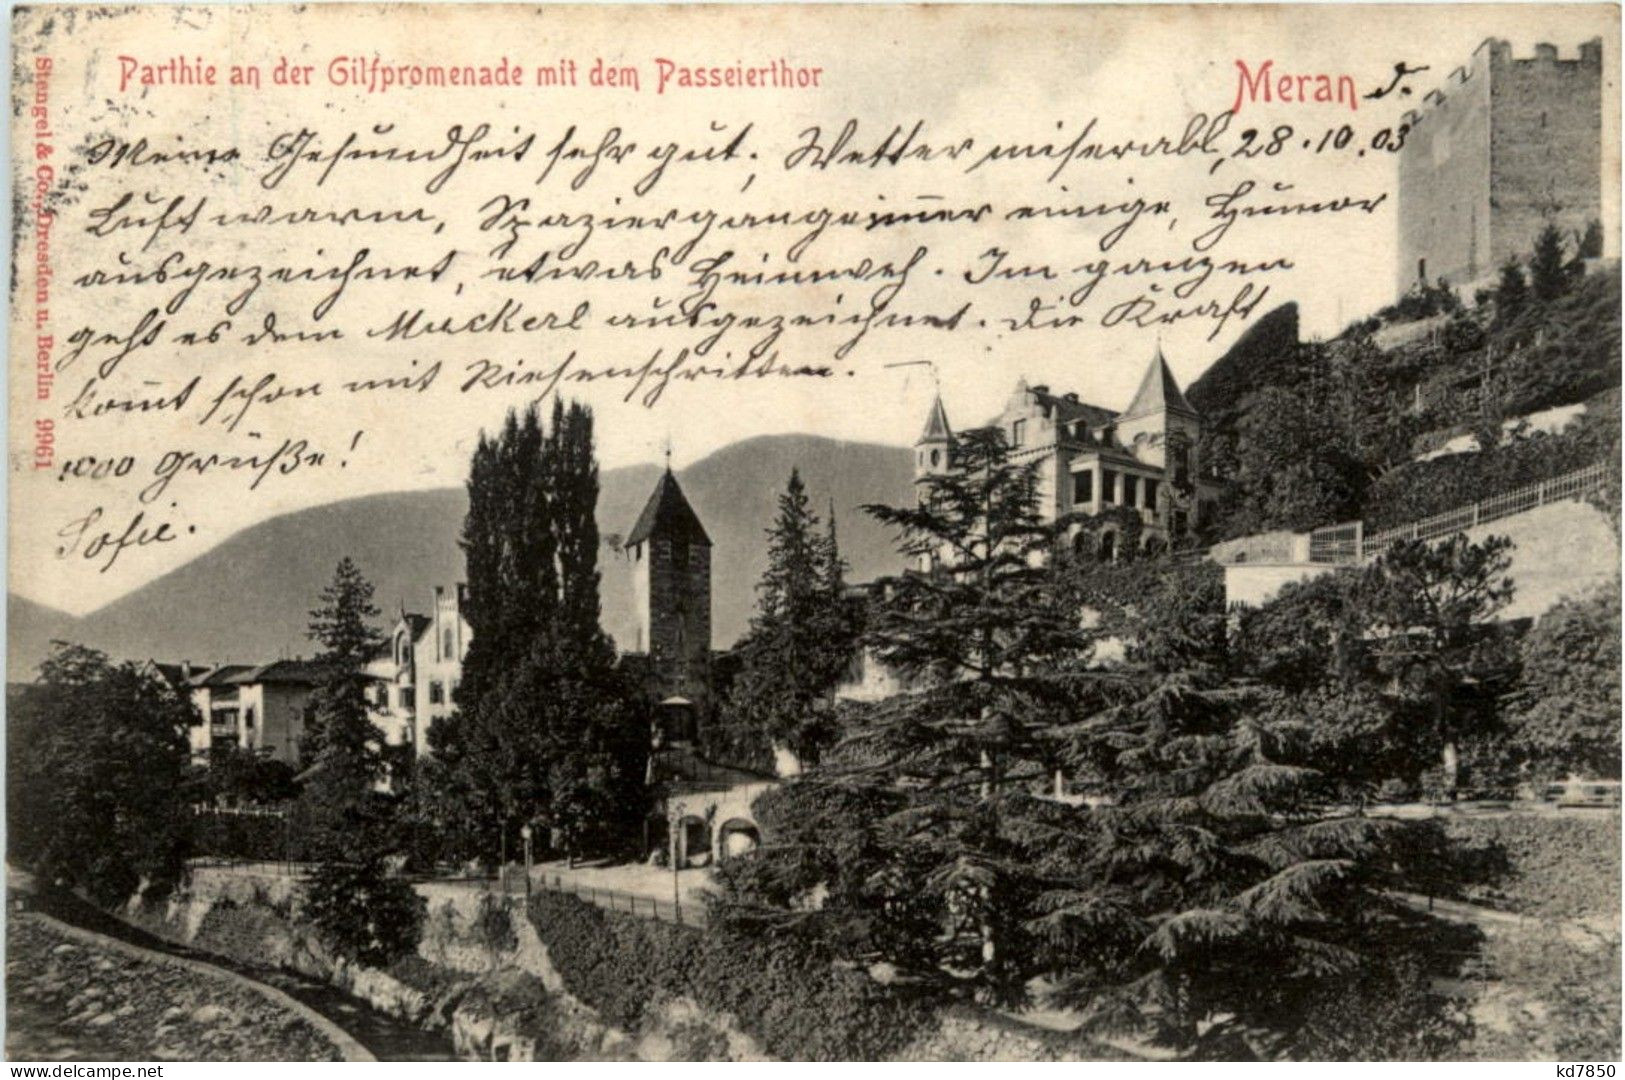 Parthie an der Gilfpromenade mit dem Passeierthor
Meran d.
28.10.03
Meine Gesundheit sehr gut, Wetter miserabl,
Luft warm, Spaziergänge immer einige, Humor
ausgezeichnet, etwas Heimweh. Im ganzen
geht es dem Muckerl ausgezeichnet. Die Kraft
kom̅t schon mit Riesenschritten. —
1000 Grüße!
Sofie.
Stengel & Co., Dresden u. Berlin 9961
delcampe.net
kd7850